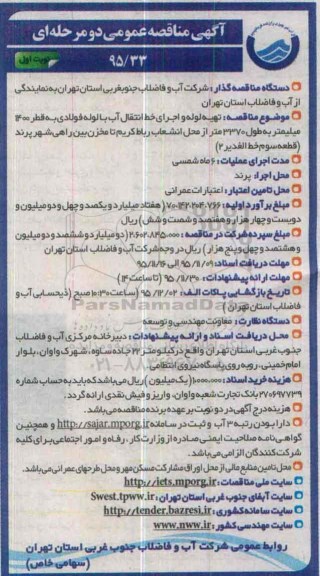 آگهی مناقصه عمومی دو مرحله‌ای
۹۵/۳۳
نوبت اول
دستگاه مناقصه گذار: شرکت آب و فاضلاب جنوبغربی استان تهران به نمایندگی
از آب و فاضلاب استان تهران
موضوع مناقصه: تهیه لوله و اجرای خط انتقال آب با لوله فولادی به قطر ۱۴۰۰
میلیمتر به طول ۳۳۷۰ متر از محل انشعاب رباط کریم تا مخزن بین راهی شهر پرند
(قطعه سوم خط الغدیر ۲)
مدت اجرای عملیات: ۶ ماه شمسی
محل اجرا: پرند
محل تامین اعتبار: اعتبارات عمرانی
مبلغ برآورد اولیه: ۷۰،۱۴۲،۲۰۴،۷۶۶ (هفتاد میلیارد و یکصد و چهل و دو میلیون و
دویست و چهار هزار و هفتصد و شصت و شش) ریال
مبلغ سپرده شرکت در مناقصه: ۲،۶۰۲،۸۴۵،۰۰۰ (دو میلیارد و ششصد و دو میلیون
و هشتصد و چهل و پنج هزار) ریال در وجه شرکت آب و فاضلاب استان تهران
مهلت دریافت اسناد: ۹۵/۱۱/۰۹ الی ۹۵/۱۱/۱۶
مهلت ارائه پیشنهادات: ۹۵/۱۱/۳۰ (تا ساعت ۱۴)
تاریخ بازگشایی پاکات الف: ۹۵/۱۲/۰۲ (ساعت ۱۰:۳۰ صبح (ذیحسابی آب و
فاضلاب استان تهران)
دستگاه نظارت: معاونت مهندسی و توسعه
محل دریافت اسناد و ارائه پیشنهادات: دبیرخانه مرکزی آب و فاضلاب
جنوب غربی استان تهران واقع در کیلومتر ۲۲ جاده ساوه، شهرک واوان، بلوار
امام خمینی، روبه روی پاسگاه نیروی انتظامی
هزینه خرید اسناد: ۱،۰۰۰،۰۰۰ (یک میلیون) ریال می‌باشد که باید به حساب شماره
۲۷۰۶۹۷۷۳۹ بانک تجارت شعبه واوان، واریز و فیش نقدی ارائه گردد.
هزینه درج آگهی در دو نوبت بر عهده برنده مناقصه می‌باشد.
دارا بودن رتبه ۳ آب و ثبت در سامانه http://sajar.mporg.ir و همچنین
گواهی‌نامه صلاحیت ایمنی صادره از وزارت کار، رفاه و امور اجتماعی برای کلیه
شرکت کنندگان الزامی می‌باشد.
محل تامین منابع مالی از محل اوراق مشارکت مسکن مهر و محل طرحهای عمرانی می‌باشد.
سایت ملی مناقصات: http://iets.mporg.ir
سایت آبفای جنوب غربی استان تهران: Swest.tpww.ir
سایت سامانه کشوری: http://tender.bazresi.ir
سایت مهندسی کشور: www.nww.ir
روابط عمومی شرکت آب و فاضلاب جنوب غربی استان تهران
(سهامی خاص)